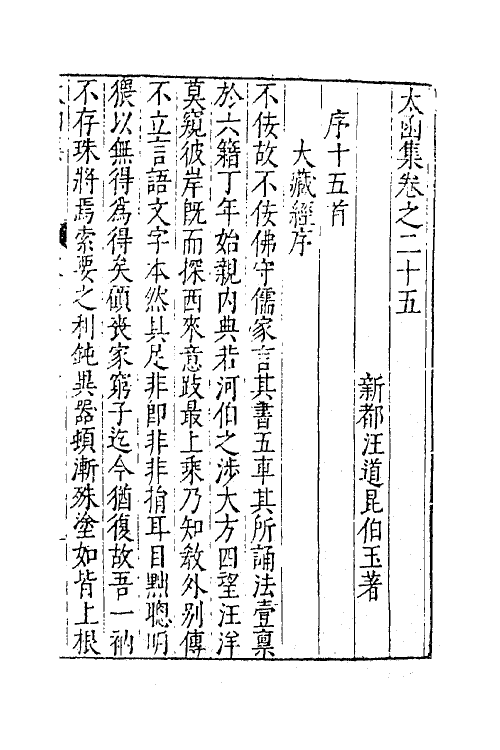 太函集卷之二十五
新都汪道昆伯玉著
序十五首
大藏經序
不佞故不佞佛守儒家言其書五車其所誦法壹稟
於六籍丁年始親內典若河伯之涉大方四望汪洋
莫窺彼岸既而探西來意跂最上乘乃知敎外别傳
不立言語文字本然具足非卽非非揹耳目黜聰明
猥以無得爲得矣顧喪家窮子迄今猶復故吾一衲
不存珠將焉索要之利鈍異器頓漸殊塗如皆上根